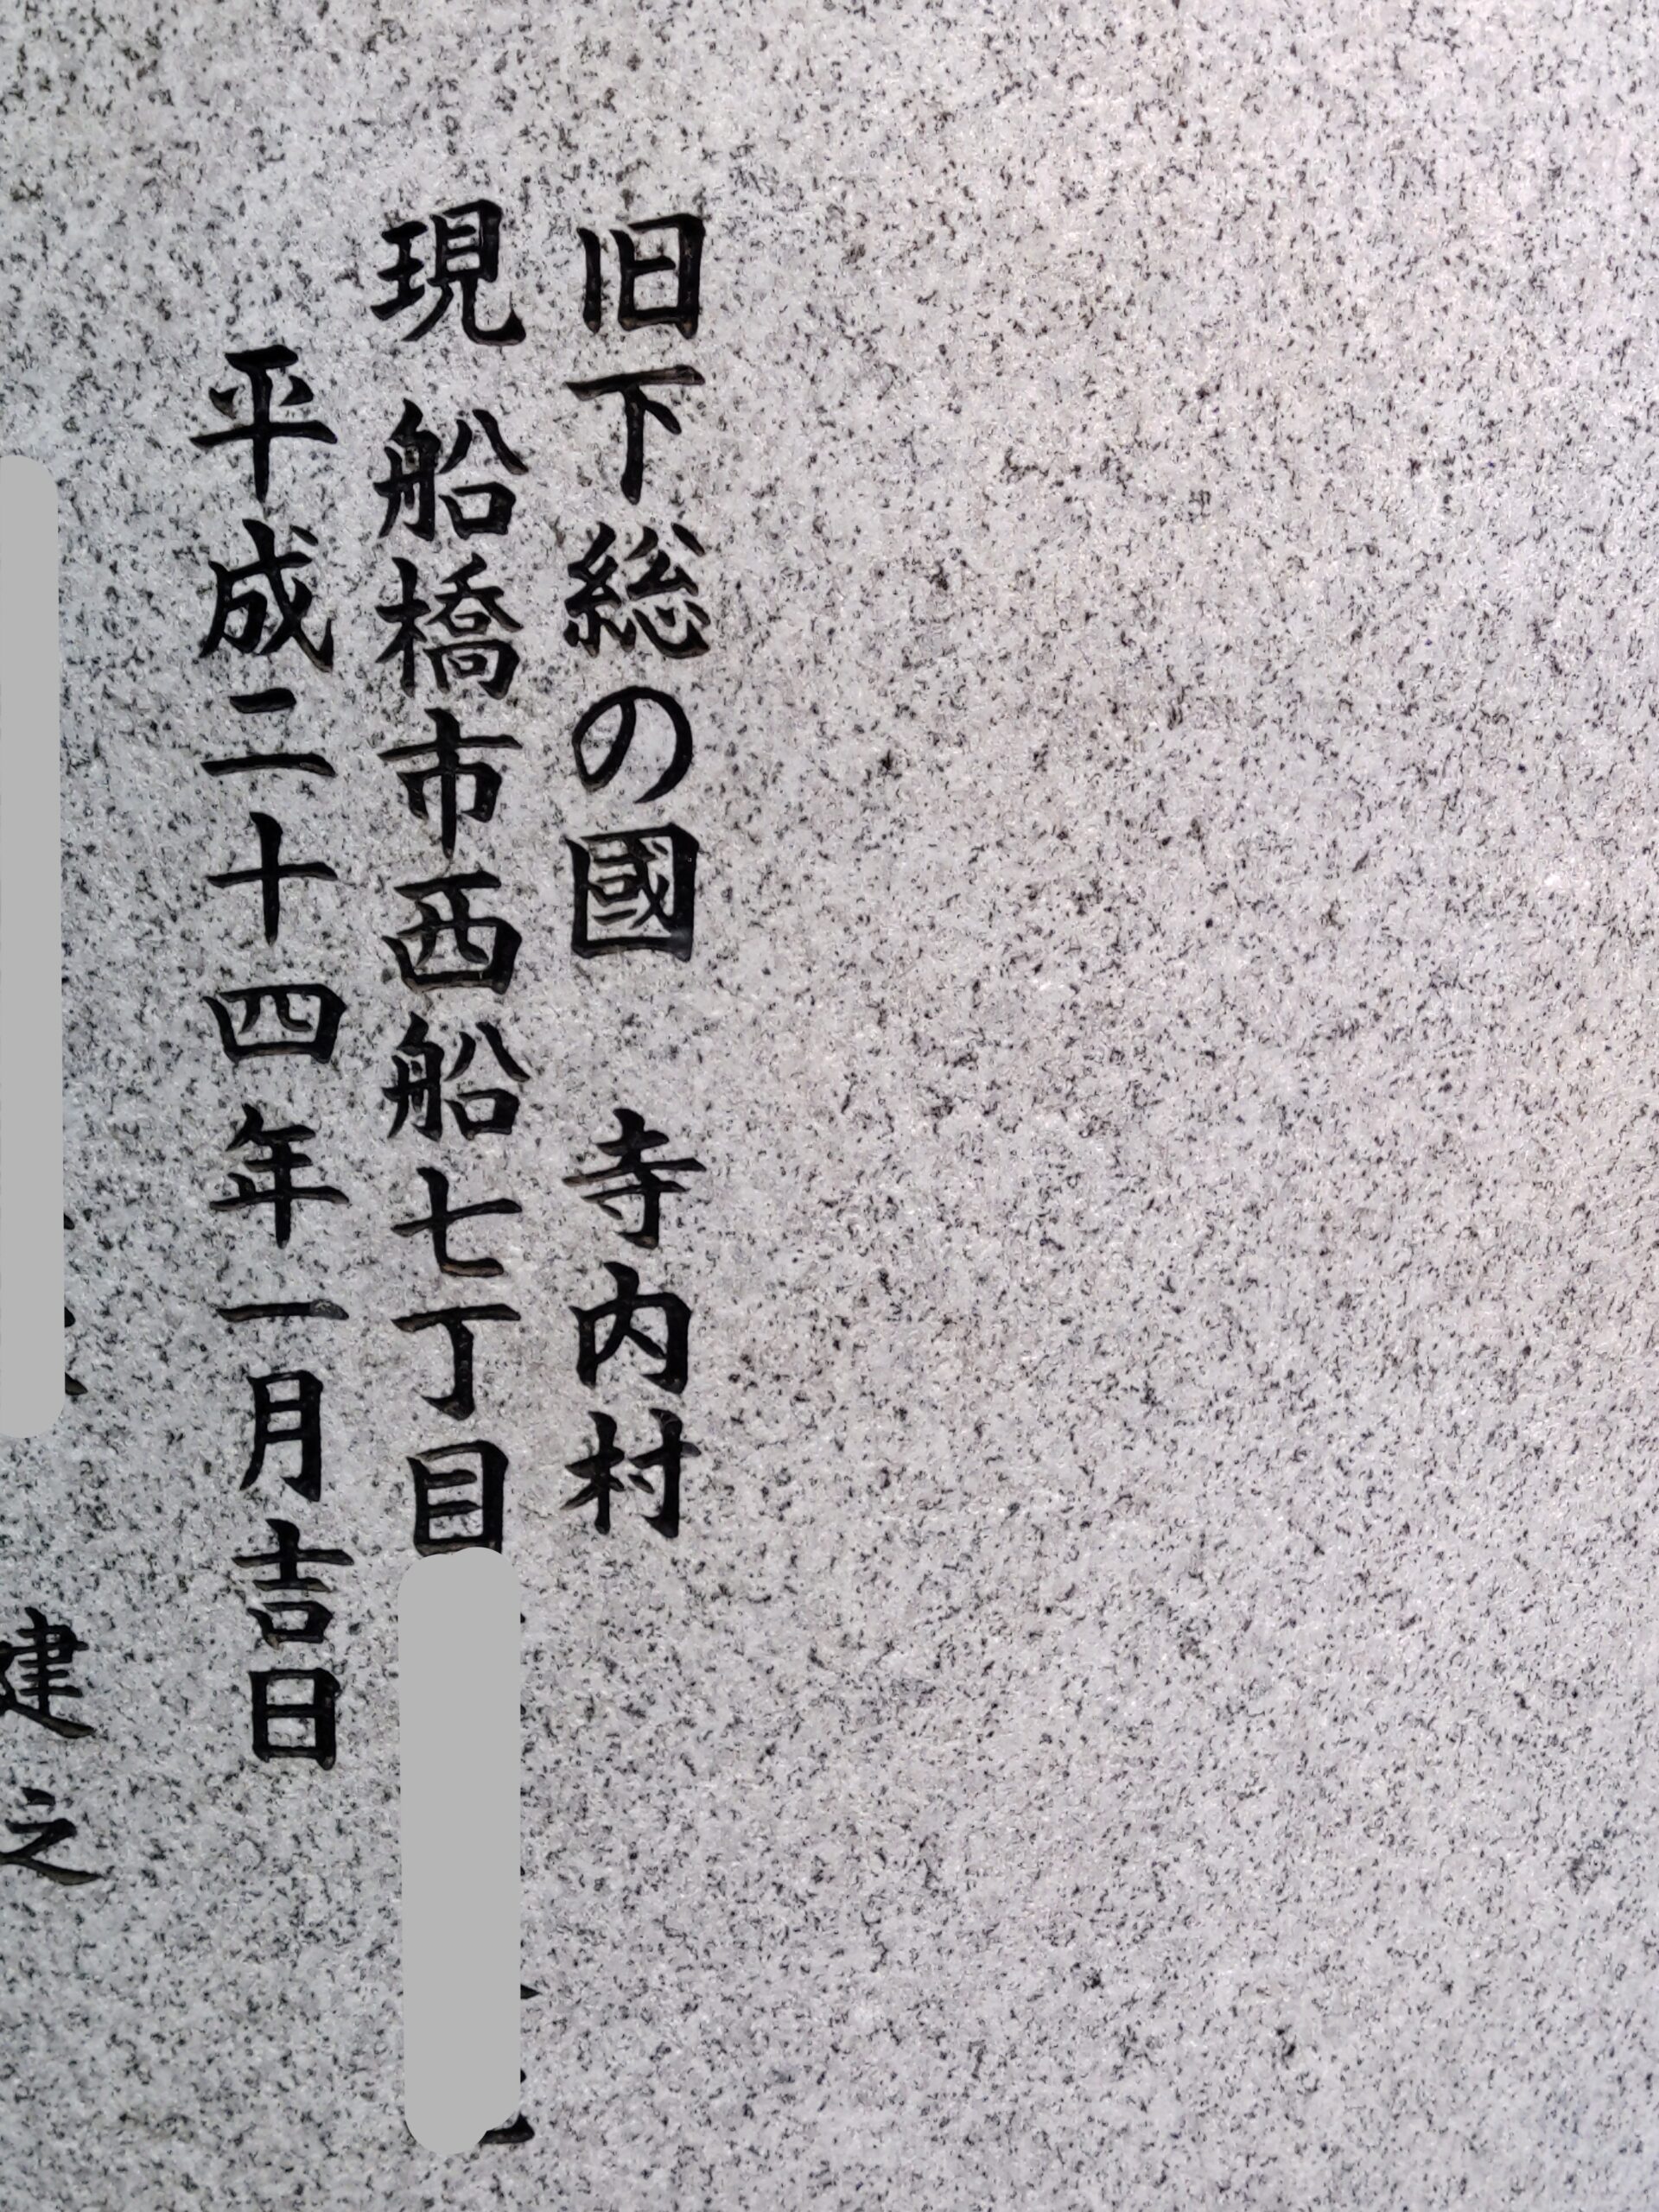 旧下総の國　寺内村
現 船橋市西船七丁目
平成二十四年一月吉日
建之